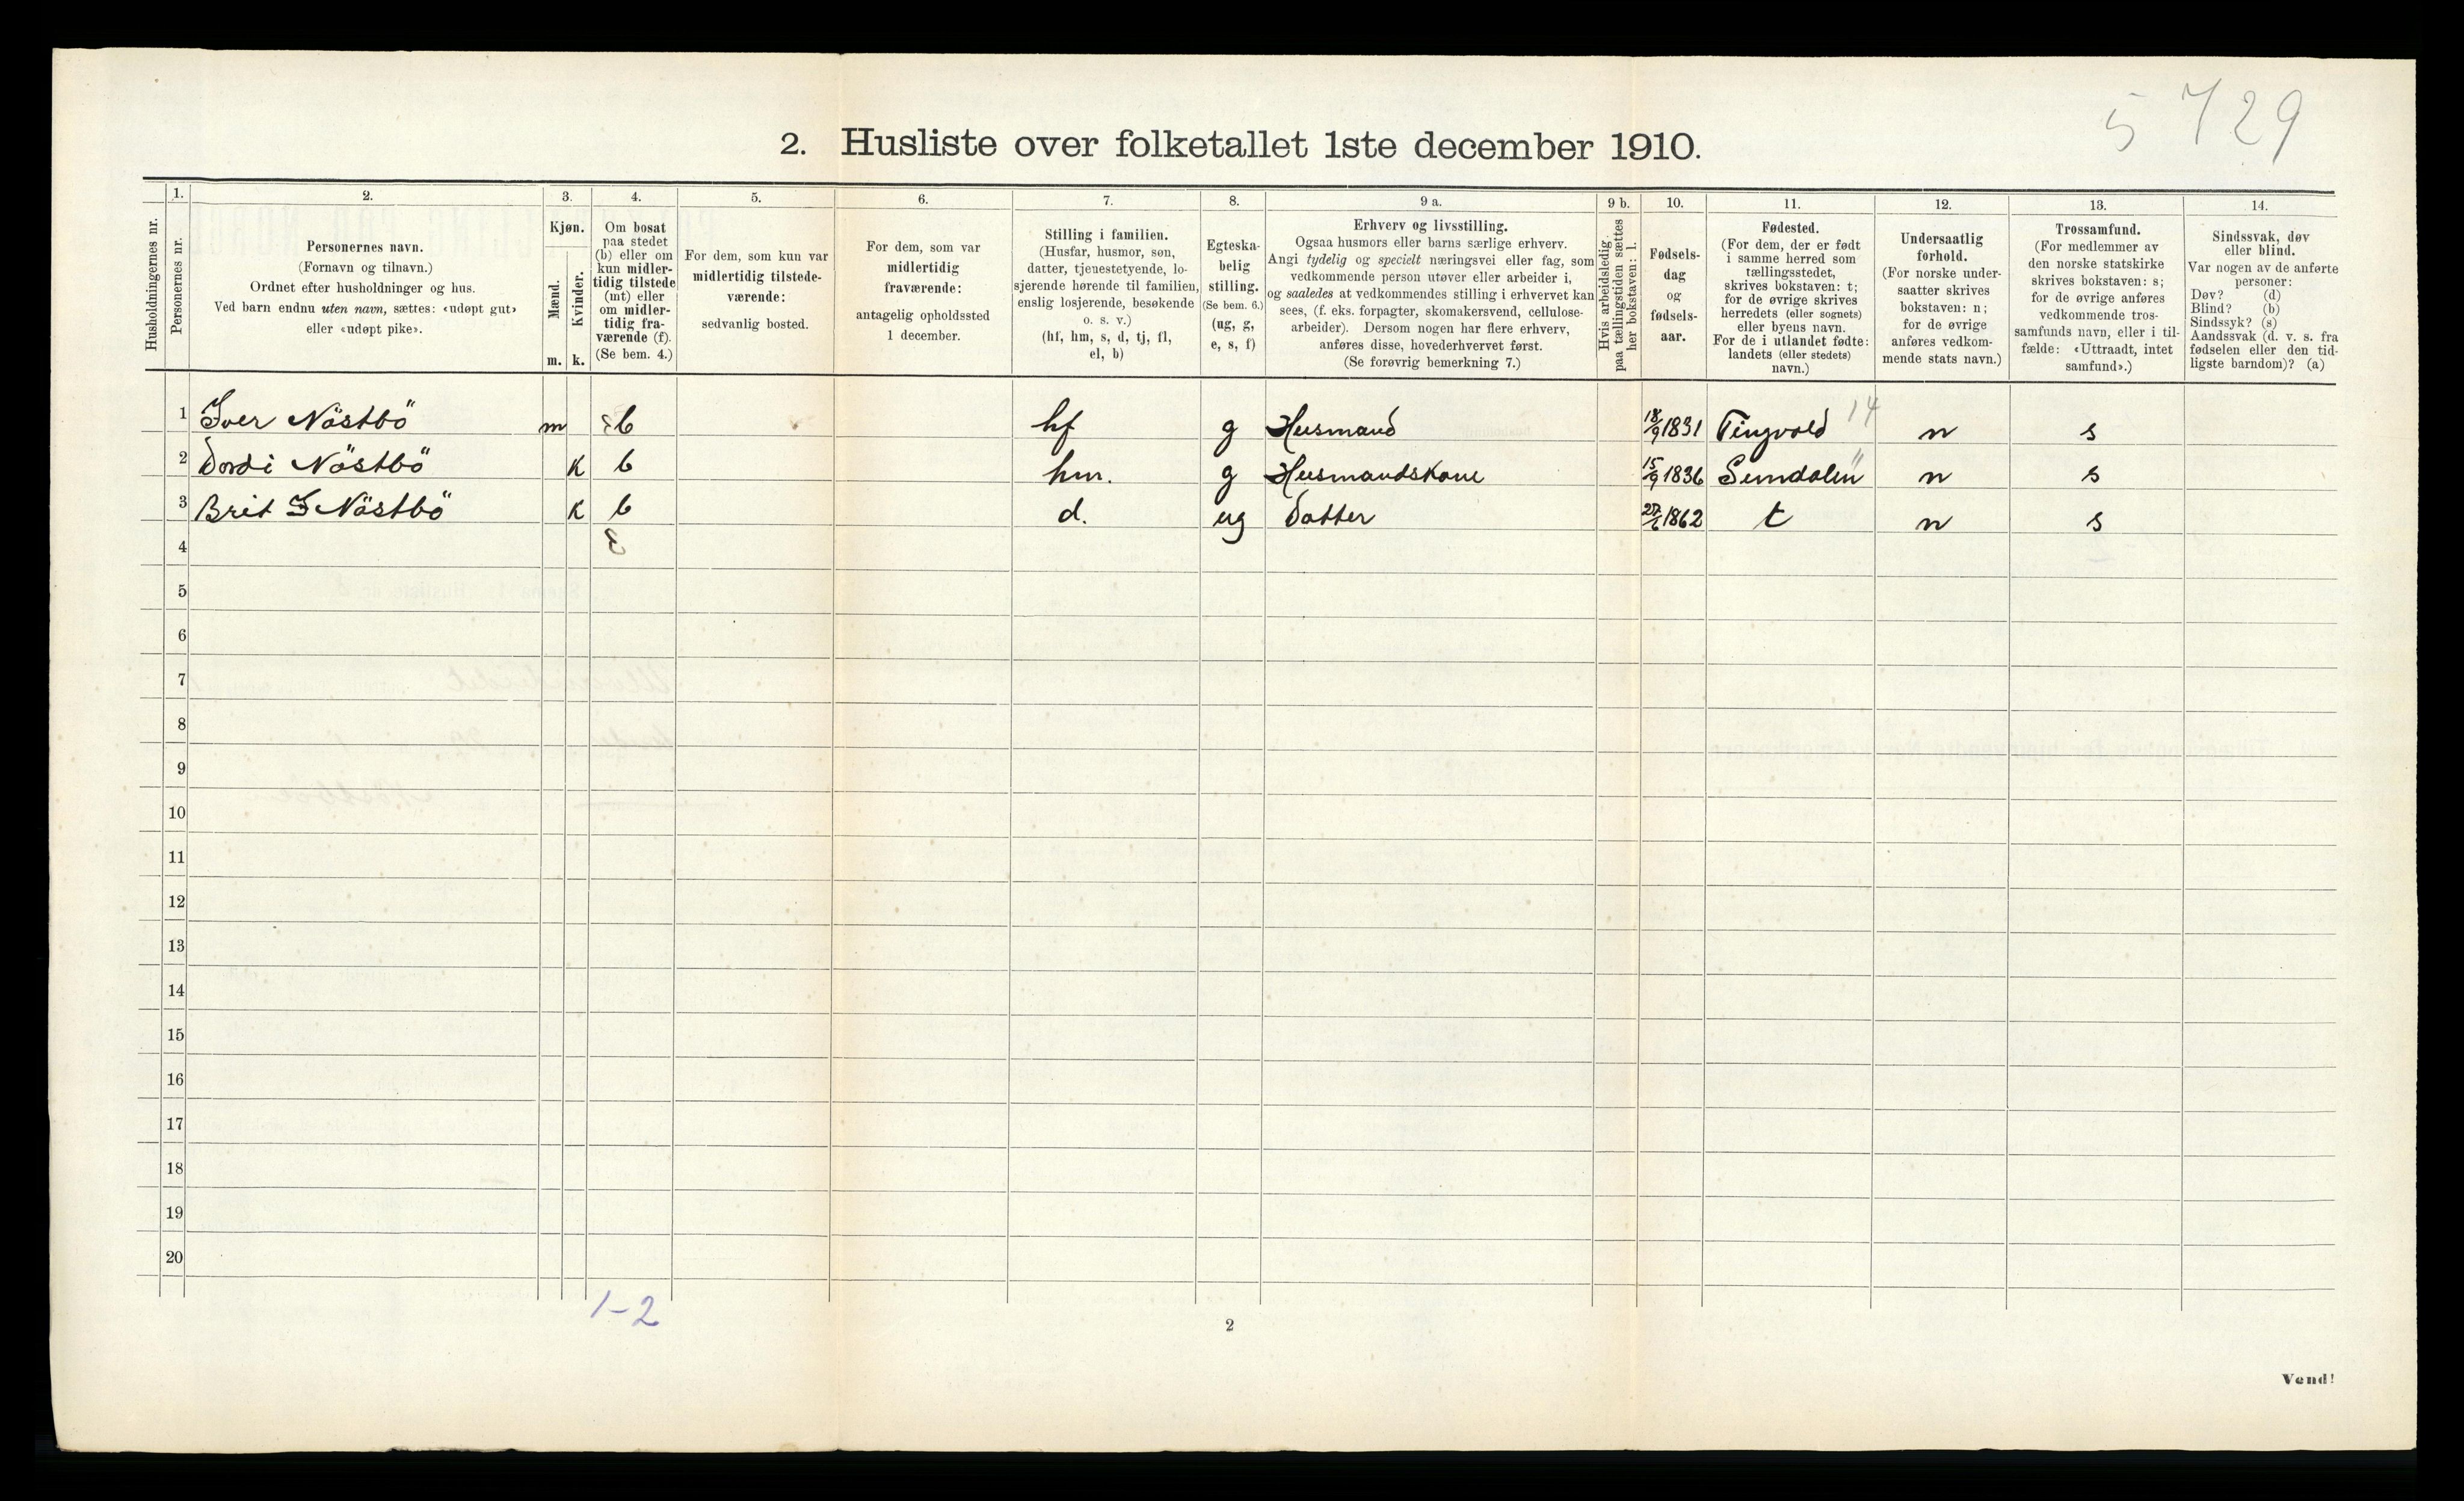 5 729
2. Husliste over folketallet 1ste december 1910.
Husholdningernes nr.
1.
Personernes nr.
2.
Personernes navn.
(Fornavn og tilnavn.)
Ordnet efter husholdninger og hus.
Ved barn endnu uten navn, sættes: «udøpt gut»
eller «udøpt pike».
3.
Kjøn.
Mænd.
Kvinder.
m. k.
4.
Om bosat
paa stedet
(b) eller om
kun midler-
tidig tilstede
(mt) eller
om midler-
tidig fra-
værende (f).
(Se bem. 4.)
5.
For dem, som kun var
midlertidig tilstede-
værende:
sedvanlig bosted.
6.
For dem, som var
midlertidig
fraværende:
antagelig opholdssted
1 december.
7.
Stilling i familien.
(Husfar, husmor, søn,
datter, tjenestetyende, lo-
sjerende hørende til familien,
enslig losjerende, besøkende
o. s. v.)
(hf, hm, s, d, tj, fl,
el, b)
8.
Egteska-
belig
stilling.
(Se bem. 6.)
(ug, g,
e, s, f)
9 a.
Erhverv og livsstilling.
Ogsaa husmors eller barns særlige erhverv.
Angi tydelig og specielt næringsvei eller fag, som
vedkommende person utøver eller arbeider i,
og saaledes at vedkommendes stilling i erhvervet kan
sees, (f. eks. forpagter, skomakersvend, cellulose-
arbeider). Dersom nogen har flere erhverv,
anføres disse, hovederhvervet først.
(Se forøvrig bemerkning 7.)
9 b.
Hvis arbeidsledig
paa tællingstiden sættes
her bokstaven: l.
10.
Fødsels-
dag
og
fødsels-
aar.
11.
Fødested.
(For dem, der er født
i samme herred som
tællingsstedet,
skrives bokstaven: t;
for de øvrige skrives
herredets (eller sognets)
eller byens navn.
For de i utlandet fødte:
landets (eller stedets)
navn.)
12.
Undersaatlig
forhold.
(For norske under-
saatter skrives
bokstaven: n;
for de øvrige
anføres vedkom-
mende stats navn.)
13.
Trossamfund.
(For medlemmer av
den norske statskirke
skrives bokstaven: s;
for de øvrige anføres
vedkommende tros-
samfunds navn, eller i til-
fælde: «Uttraadt, intet
samfund».)
14.
Sindssvak, døv
eller blind.
Var nogen av de anførte
personer:
Døv? (d)
Blind? (b)
Sindssyk? (s)
Aandssvak (d. v. s. fra
fødselen eller den tid-
ligste barndom)? (a)
1 Iver Nöstbö m b hf g Husmand 18/9 1831 Tingvold 14 n s
2 Dordi Nöstbö k b hm. g Husmandskone 15/9 1836 Sundalen " n s
3 Brit I Nöstbö k b d. ug Datter 1862 t n s
4
5
6
7
8
9
10
11
12
13
14
15
16
17
18
19
20
1-2
2
Vend!